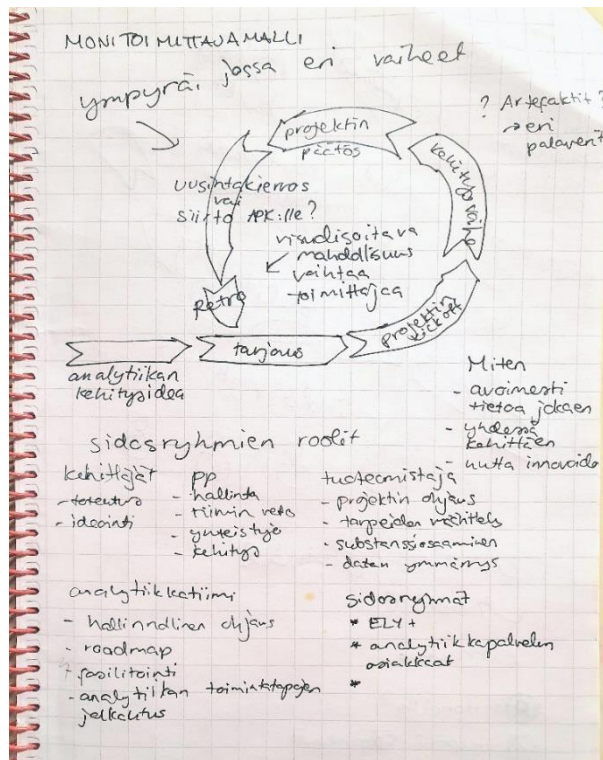 MONITOIMITTAJAMALLI
ympyrä, jossa eri vaiheet
? Artefaktit ?
→ eri
palaverit
projektin
päätös
kehitysvaihe
uusintakierros
vai
siirto APK:lle?
visualisoitava
mahdollisuus
vaihtaa
toimittajaa
Retro
projektin
kickoff
tarjous
analytiikan
kehitysidea
Miten
- avoimesti
tietoa jakaen
- yhdessä
kehittäen
- uutta innovoiden
sidosryhmien roolit
kehittäjät
- toteutus
- ideointi
PP
- hallinta
- tiimin veto
- yhteistyö
- kehitys
tuoteomistaja
- projektin ohjaus
- tarpeiden välittely
- substanssiosaaminen
- datan ymmärrys
analytiikkatiimi
- hallinnollinen ohjaus
- roadmap
- fasilitointi
- analytiikan toimintatapojen
jalkautus
sidosryhmät
* ELY +
* analytiikkapalvelun
asiakkaat
*